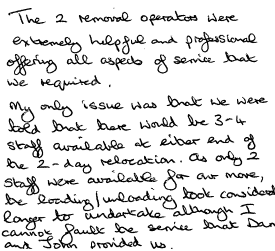 The 2 removal operators were
extremely helpful and professional
offering all aspects of service that
we required.
My only issue was that we were
told that there would be 3-4
staff available at either end of
the 2-day relocation. As only 2
staff were available for our move,
the loading/unloading took considerd
longer to undertake although I
cannot fault the service that Dan
and John provided us.